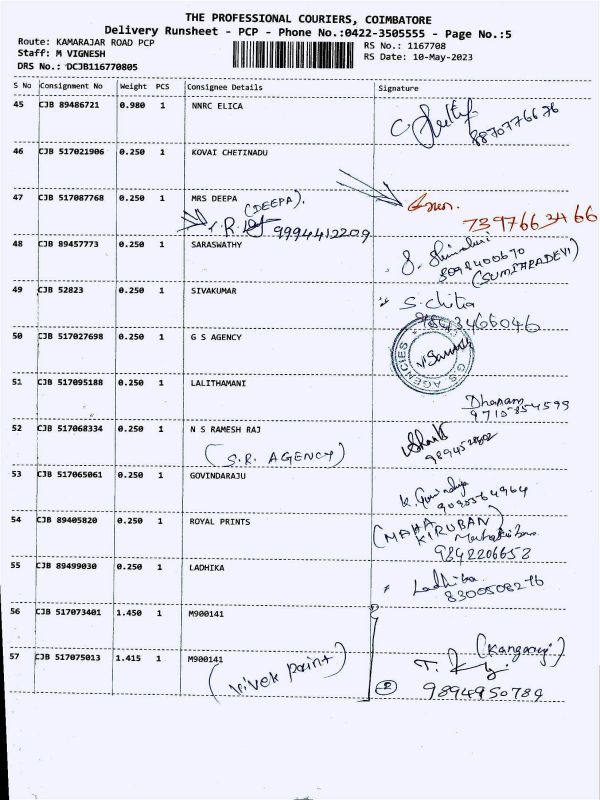 THE PROFESSIONAL COURIERS, COIMBATORE
Delivery Runsheet - PCP - Phone No.:0422-3505555 - Page No.:5
Route: KAMARAJAR ROAD PCP
Staff: M VIGNESH
DRS No.: DCJB116770805
RS No.: 1167708
RS Date: 10-May-2023
S No Consignment No Weight PCS Consignee Details Signature
45 CJB 89486721 0.980 1 NNRC ELICA
8870776676
46 CJB 517021906 0.250 1 KOVAI CHETINADU
47 CJB 517087768 0.250 1 MRS DEEPA
(DEEPA).
9994412209
7397663466
48 CJB 89457773 0.250 1 SARASWATHY
(SUMITHRADEVI)
49 CJB 52823 0.250 1 SIVAKUMAR
S. Chitra
50 CJB 517027698 0.250 1 G S AGENCY
G.S. AGENCIES
51 CJB 517095188 0.250 1 LALITHAMANI
Dhanam
52 CJB 517068334 0.250 1 N S RAMESH RAJ
(S.R. AGENCY)
53 CJB 517065061 0.250 1 GOVINDARAJU
54 CJB 89405820 0.250 1 ROYAL PRINTS
(MAHA KIRUBAN)
9842206652
55 CJB 89499030 0.250 1 LADHIKA
Ladhika
56 CJB 517073401 1.450 1 M900141
57 CJB 517075013 1.415 1 M900141
(Vivek Paint)
2
9894950789